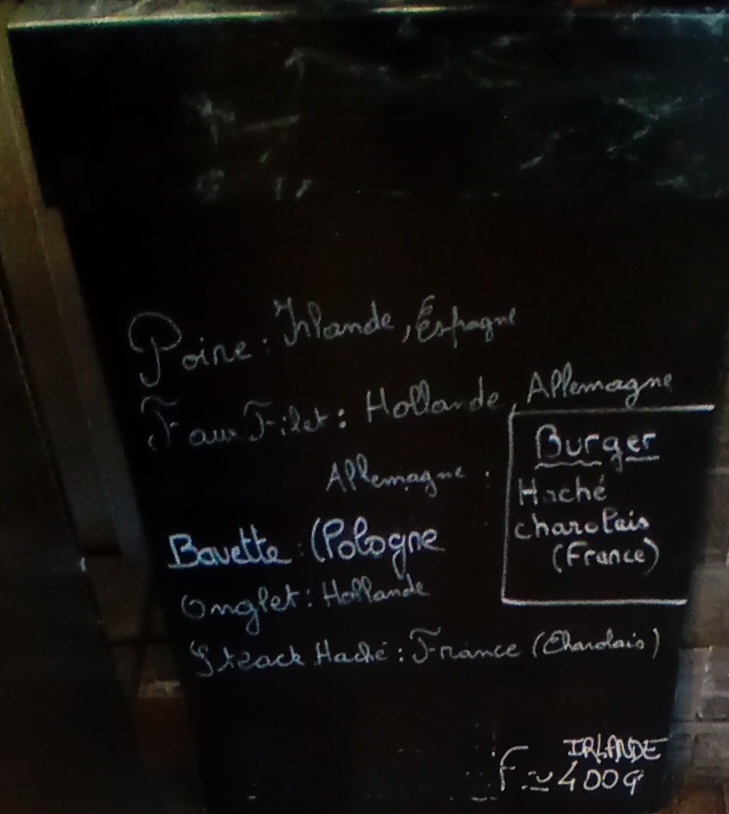 Poire : Irlande, Espagne
Faux Filet : Hollande, Allemagne
Allemagne
Bavette : (Pologne
Onglet : Hollande
Steack Haché : France (Charolais)
Burger
Haché
charolais
(France)
IRLANDE
F ≃ 400g